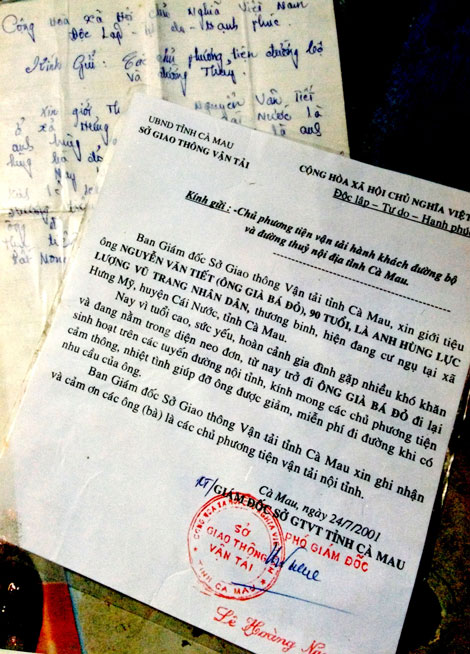 Cộng hòa xã Hội chủ Nghĩa Việt Nam
Độc Lập - Tự do - Hạnh phúc
Kính Gửi: Các chủ phương tiện đường bộ
và đường Thủy
Xin giới Th
Nguyễn Văn Tiết
ở xã Hưng
Nước là
anh hùng
là anh
hùng bá đỏ
Nay
UBND TỈNH CÀ MAU
SỞ GIAO THÔNG VẬN TẢI
CỘNG HÒA XÃ HỘI CHỦ NGHĨA VIỆT
Độc lập – Tự do – Hạnh phúc
Kính gửi : -Chủ phương tiện vận tải hành khách đường bộ
và đường thuỷ nội địa tỉnh Cà Mau.
Ban Giám đốc Sở Giao thông Vận tải tỉnh Cà Mau, xin giới thiệu
ông NGUYỄN VĂN TIẾT (ÔNG GIÀ BÁ ĐỎ), 90 TUỔI, LÀ ANH HÙNG LỰC
LƯỢNG VŨ TRANG NHÂN DÂN, thương binh, hiện đang cư ngụ tại xã
Hưng Mỹ, huyện Cái Nước, tỉnh Cà Mau.
Nay vì tuổi cao, sức yếu, hoàn cảnh gia đình gặp nhiều khó khăn
và đang nằm trong diện neo đơn, từ nay trở đi ÔNG GIÀ BÁ ĐỎ đi lại
sinh hoạt trên các tuyến đường nội tỉnh, kính mong các chủ phương tiện
cảm thông, nhiệt tình giúp đỡ ông được giảm, miễn phí đi đường khi có
nhu cầu của ông.
Ban Giám đốc Sở Giao thông Vận tải tỉnh Cà Mau xin ghi nhận
và cảm ơn các ông (bà) là các chủ phương tiện vận tải nội tỉnh.
Cà Mau, ngày 24/7/2001
KT/GIÁM ĐỐC SỞ GTVT TỈNH CÀ MAU
PHÓ GIÁM ĐỐC
CỘNG HÒA XÃ HỘI CHỦ NGHĨA VIỆT
SỞ
GIAO THÔNG
VẬN TẢI
TỈNH CÀ MAU
Lê Hoàng